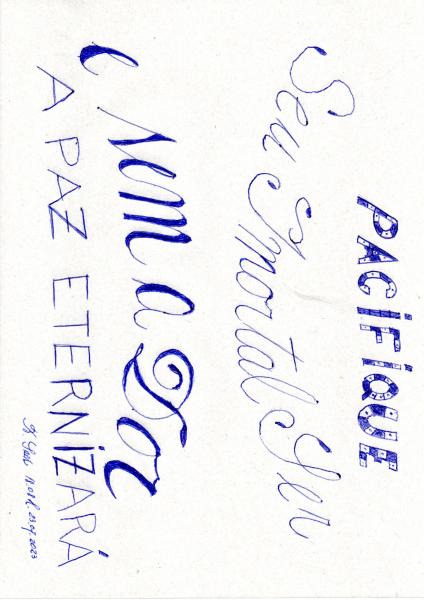 PACiFiQUE
Seu Imortal Ser
e Nem a Dor
A PAZ ETERNIZARÁ
23.07.2023